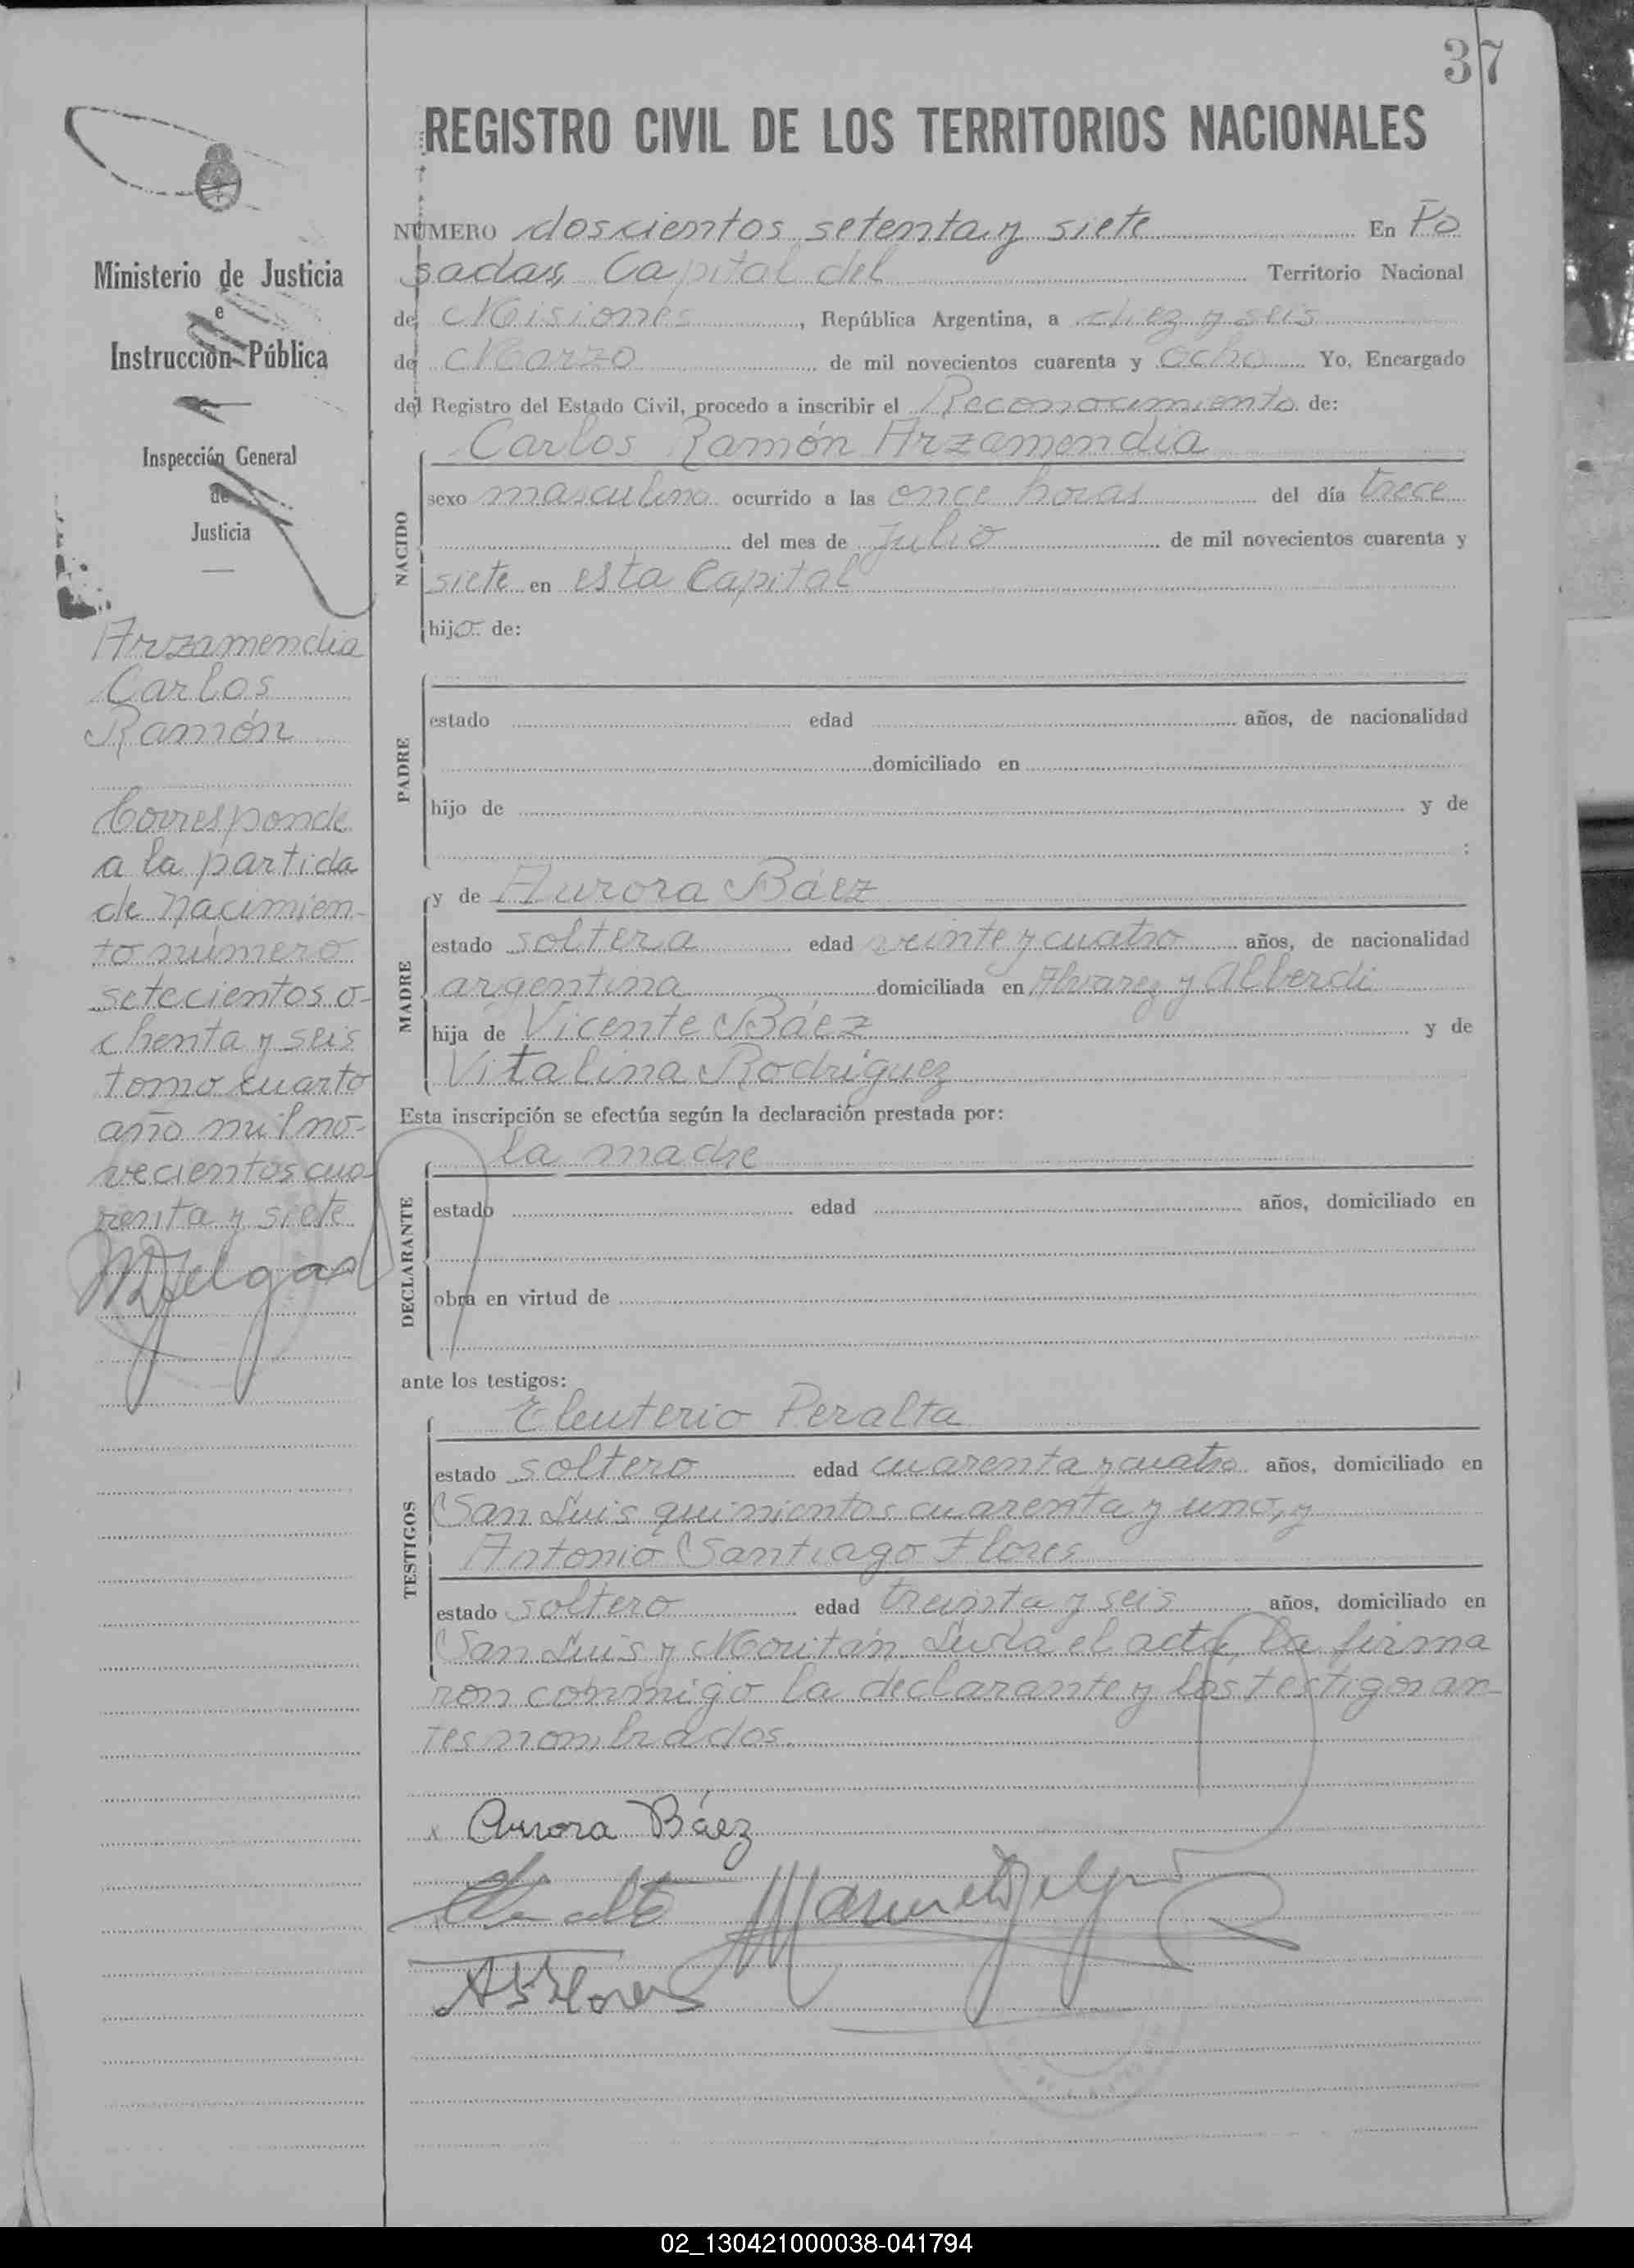 37
REGISTRO CIVIL DE LOS TERRITORIOS NACIONALES
Ministerio de Justicia
e
Instrucción Pública
Inspección General
de
Justicia
Arzamendia
Carlos
Ramón
Corresponde
a la partida
de nacimien-
to número
setecientos o-
chenta y seis
tomo cuarto
año mil no-
vecientos cua-
renta y siete
NÚMERO doscientos setenta y siete En Po
sadas, Capital del Territorio Nacional
de Misiones, República Argentina, a diez y seis
de Marzo de mil novecientos cuarenta y ocho Yo, Encargado
del Registro del Estado Civil, procedo a inscribir el Reconocimiento de:
Carlos Ramón Arzamendia
NACIDO
sexo masculino ocurrido a las once horas del día trece
del mes de Julio de mil novecientos cuarenta y
siete en esta Capital
hijo de:
PADRE
estado edad años, de nacionalidad
domiciliado en
hijo de y de
:
MADRE
y de Aurora Báez
estado soltera edad veinte y cuatro años, de nacionalidad
argentina domiciliada en Alvarez y Alberdi
hija de Vicente Báez y de
Vitalina Rodríguez
Esta inscripción se efectúa según la declaración prestada por:
la madre
DECLARANTE
estado edad años, domiciliado en
obra en virtud de
ante los testigos:
TESTIGOS
Eleuterio Peralta
estado soltero edad cuarenta y cuatro años, domiciliado en
San Luis quinientos cuarenta y uno, y
Antonio Santiago Flores
estado soltero edad treinta y seis años, domiciliado en
San Luis y Moritán Leida el acta, la firma
ron conmigo la declarante y los testigos an-
tes nombrados.
x Aurora Báez
Manuel
ASFlores
02_130421000038-041794